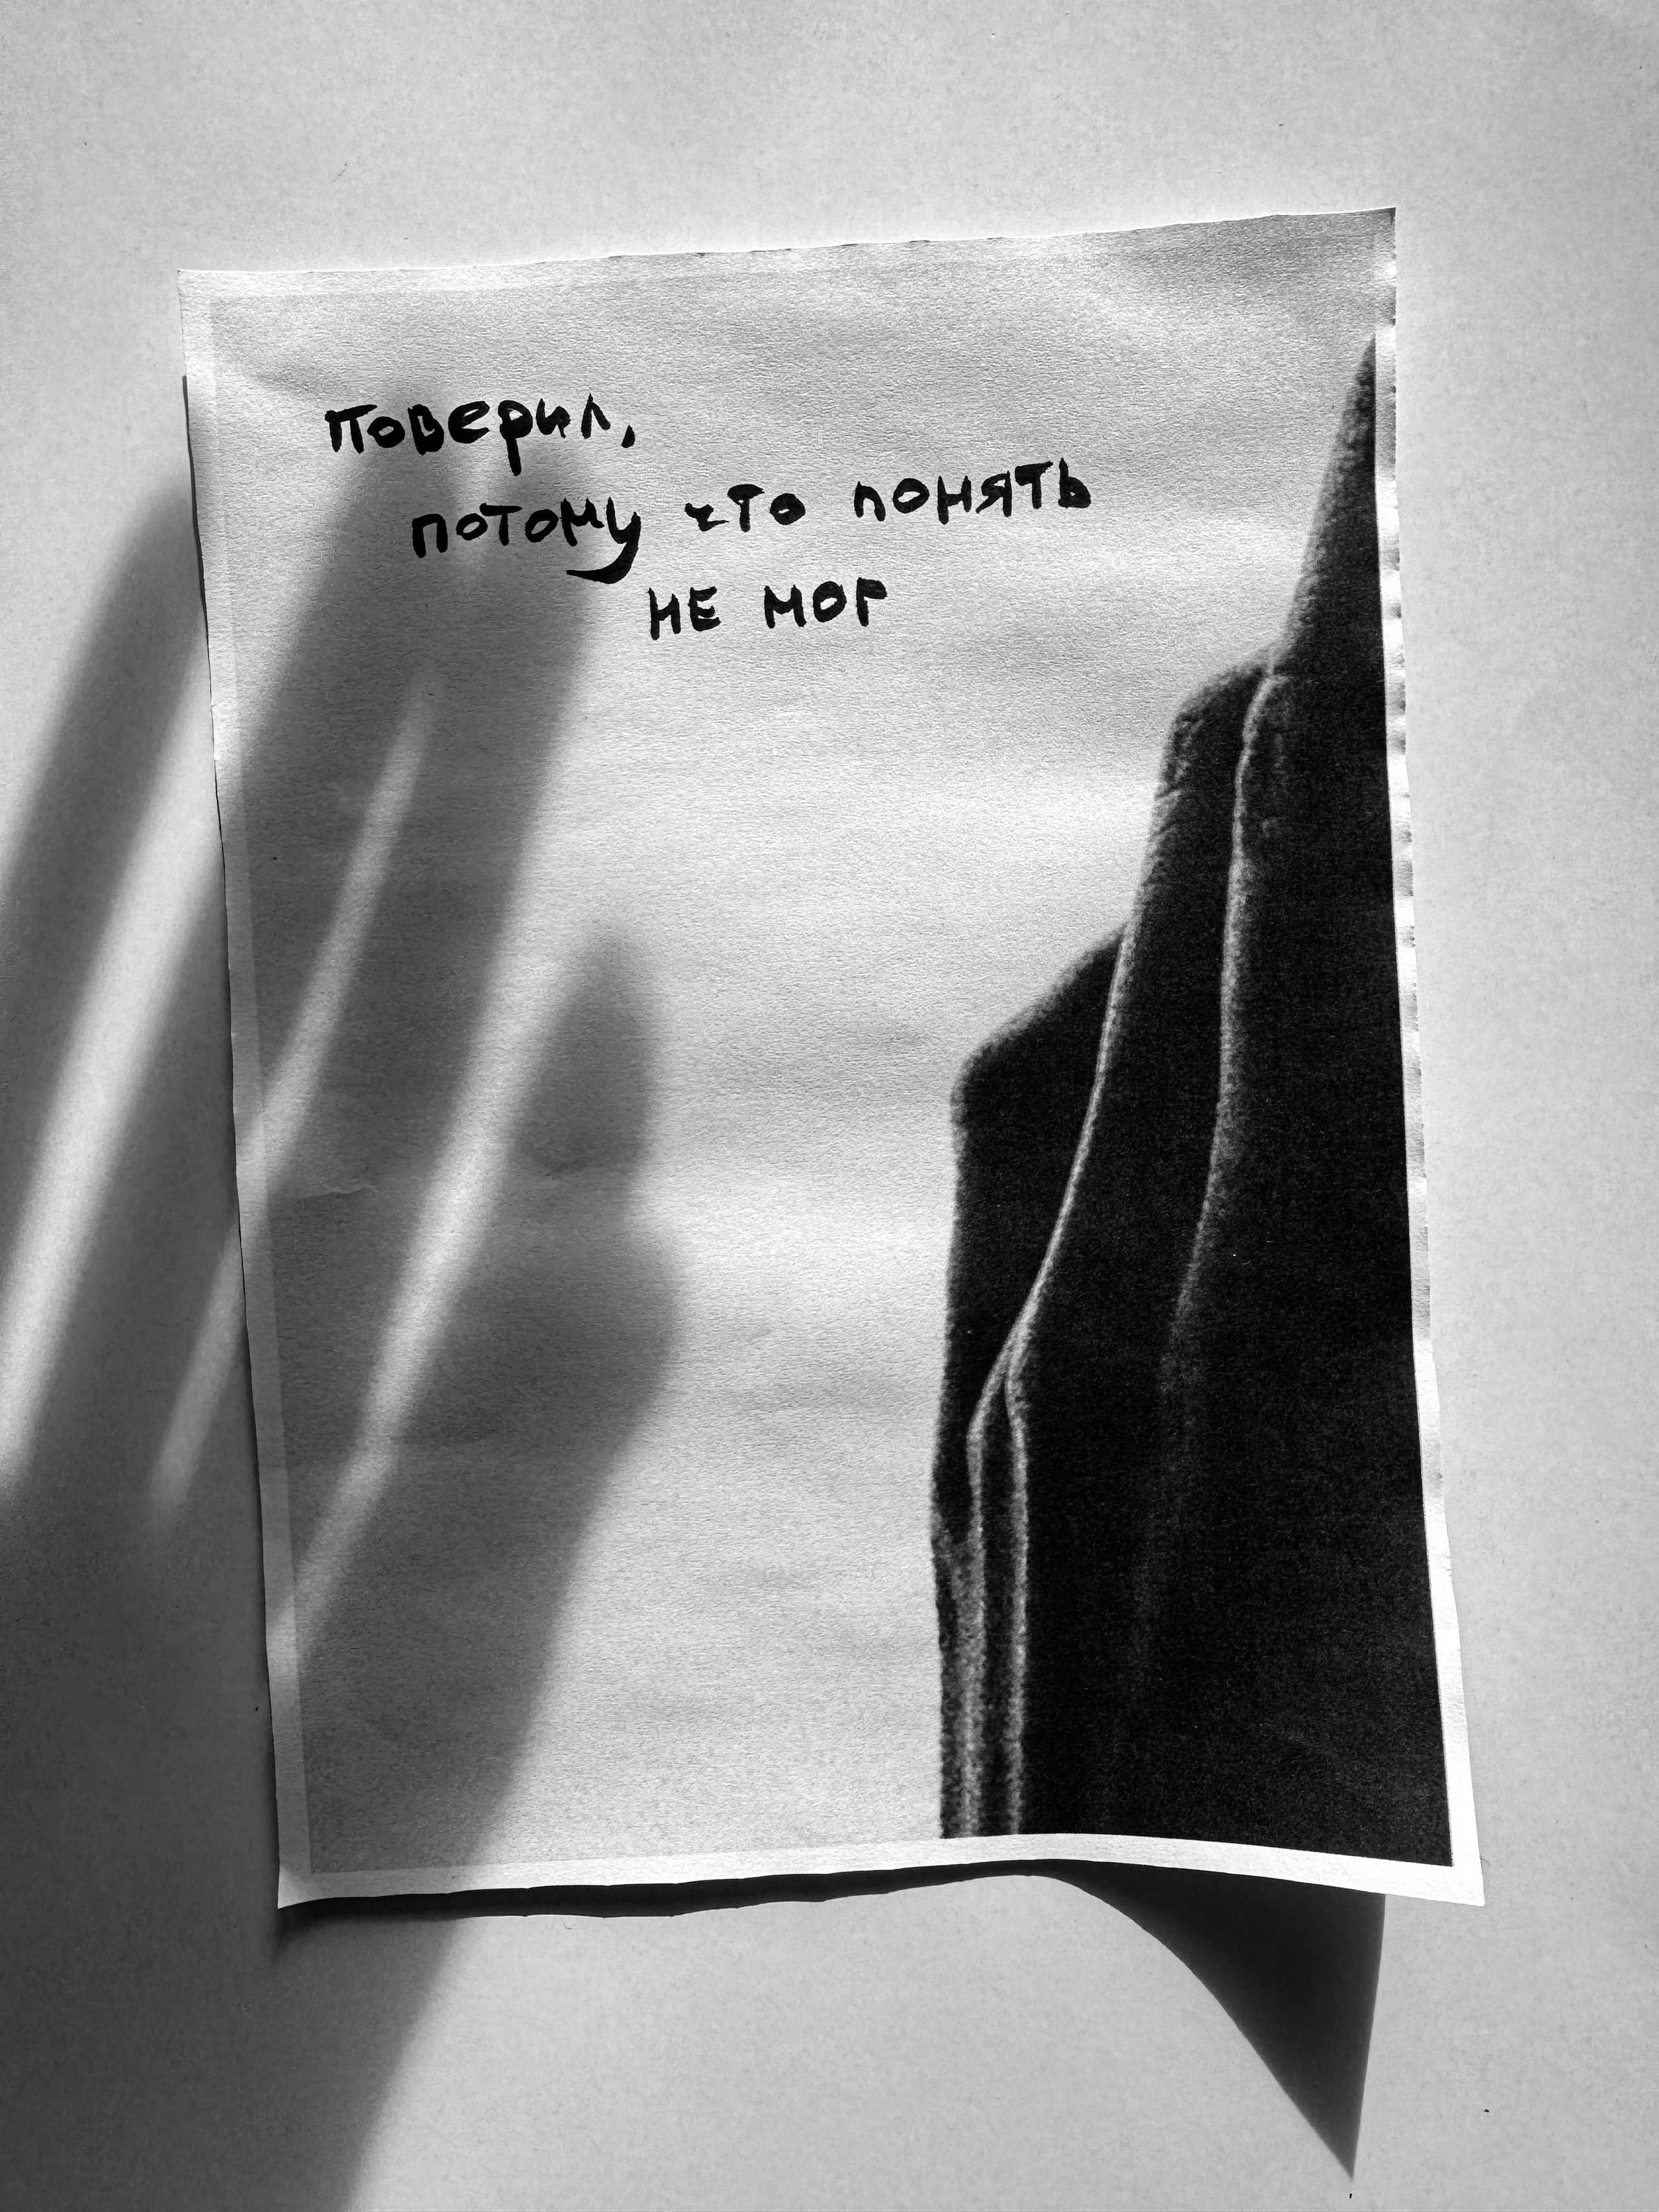 поверил,
потому что понять
НЕ МОГ